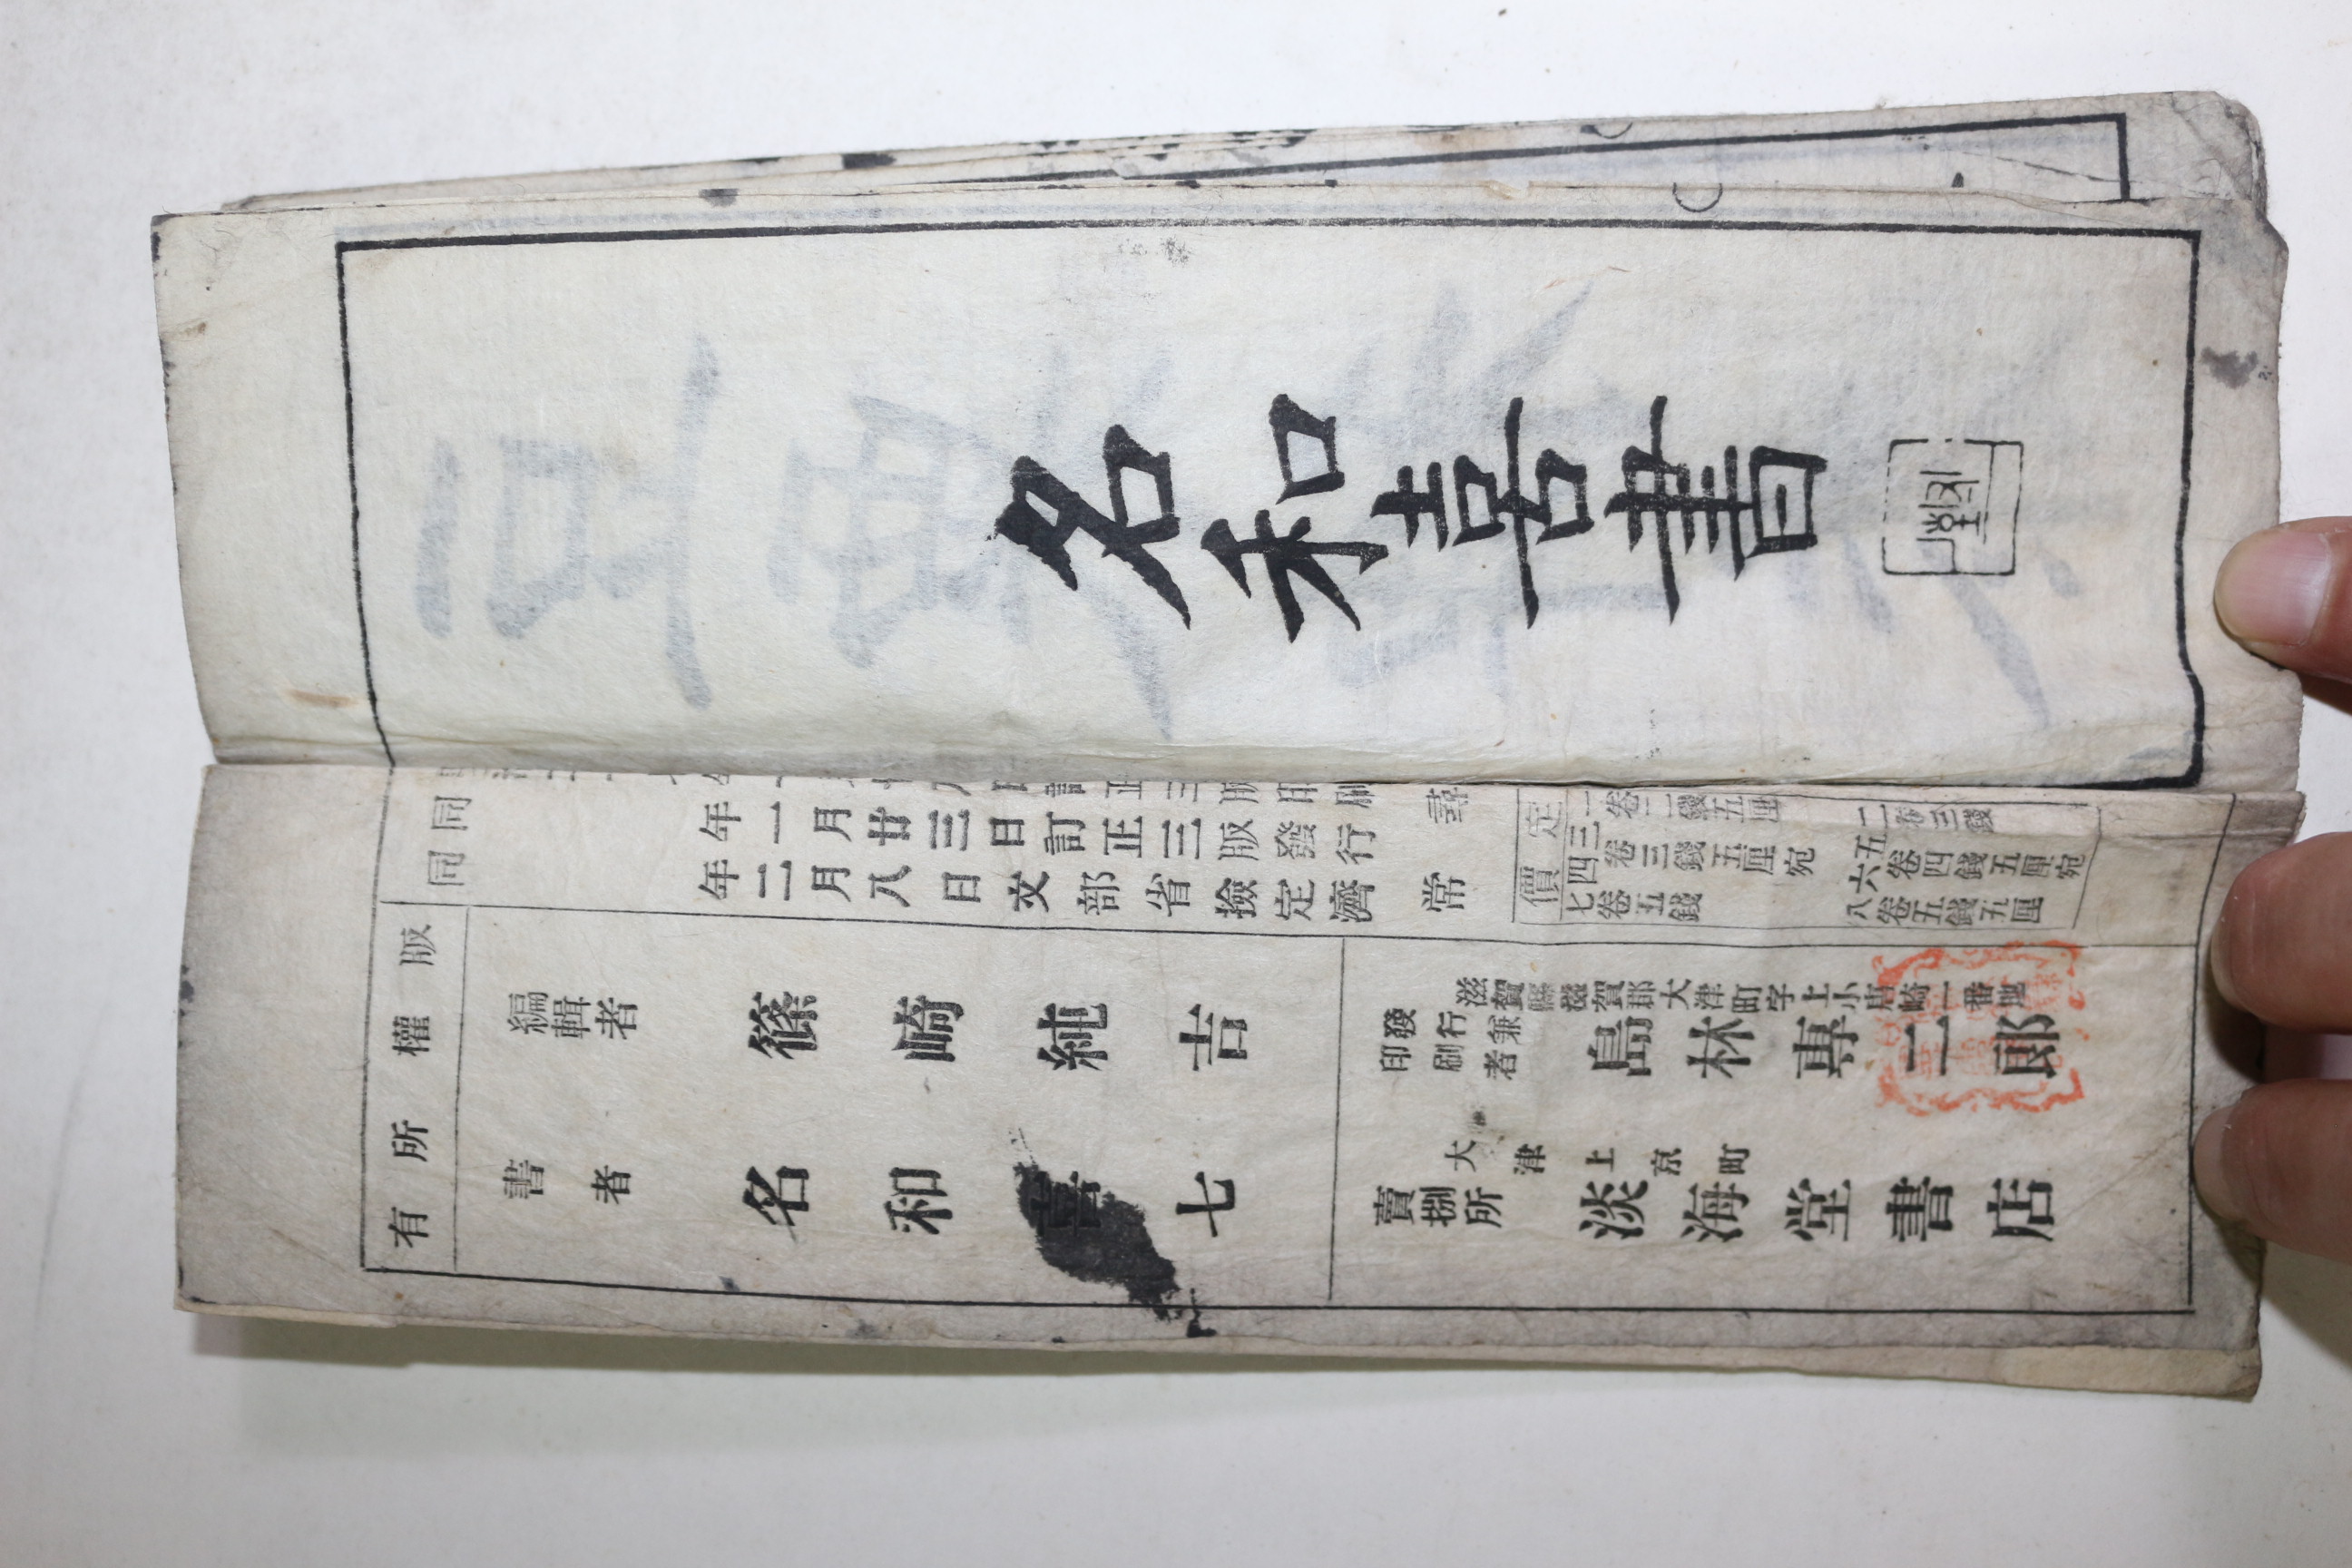 名和喜書
同年一月廿三日訂正三版發行
同年二月八日文部省檢定濟
尋常
定價
一卷二錢五厘
三四卷三錢五厘宛
七卷五錢
二卷三錢
五六卷四錢五厘宛
八卷五錢五厘
版權所有
編輯者
篠崎純吉
書者
名和喜七
發行兼印刷者
滋賀縣滋賀郡大津町字上小唐崎一番地
島林專二郎
賣捌所
大津上京町
淡海堂書店